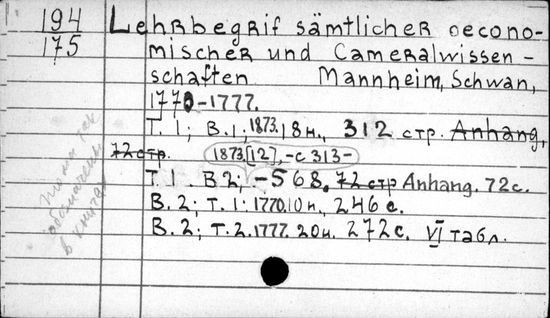 194
175
Lehrbegrif sämtlicher oecono-
mischer und Cameralwissen-
schaften Mannheim, Schwan,
1770-1777.
T. 1; B. 1; 1873. 18 н., 312 стр. Anhang,
72 стр. 1873. [12], -с 313-
T. 1. B 2; -568. 72 стр Anhang. 72 с.
B. 2; T. 1: 1770. 10 н., 246 с.
B. 2; T. 2. 1777. 20 н. 272 с. VI табл.
в книгах